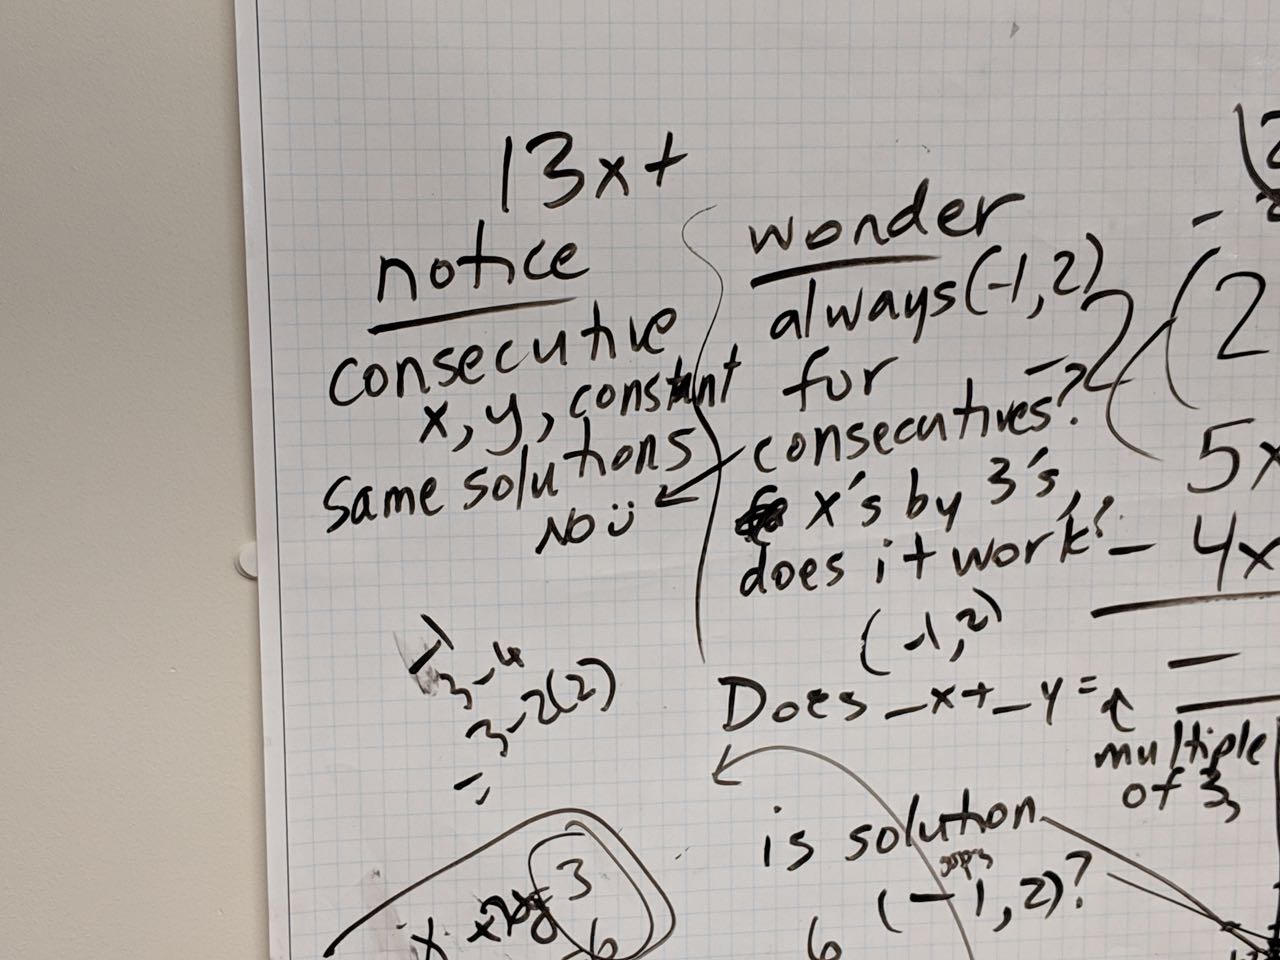 13x+
notice
consecutive
x, y, constant
same solutions
NO
wonder
always (-1, 2)
for
consecutives?
x's by 3's,
does it work?
(-1, 2)
Does _x+_y=
multiple
of 3,
is solution
(-1, 2)?
3-4
3-2(2)
3
6
6
2
5x
- 4x